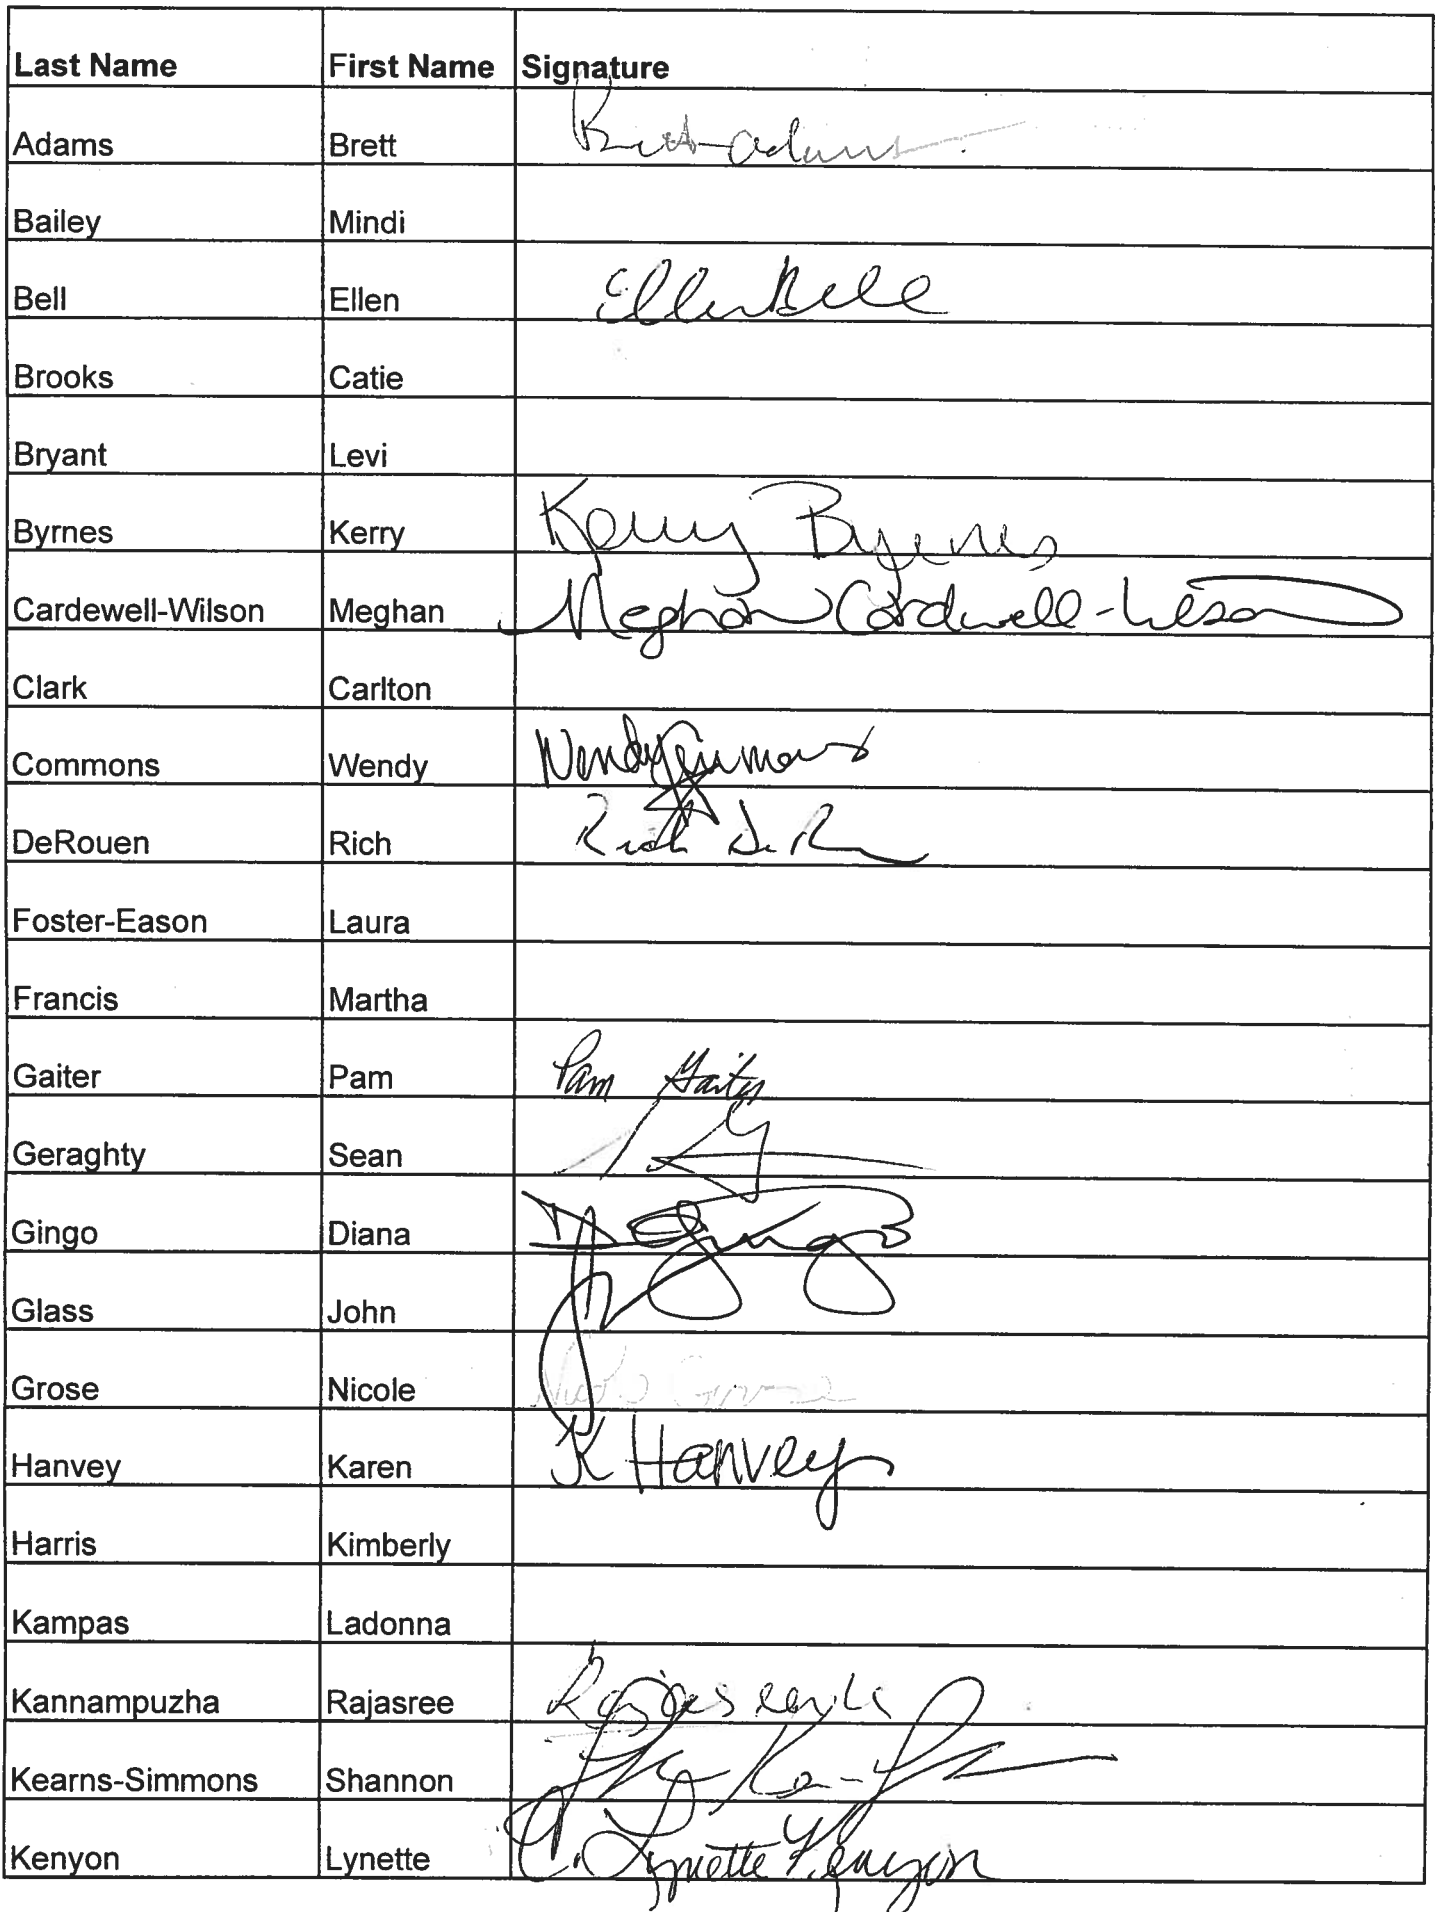 Last Name First Name Signature
Adams Brett Brett Adams
Bailey Mindi
Bell Ellen Ellen Bell
Brooks Catie
Bryant Levi
Byrnes Kerry Kerry Byrnes
Cardewell-Wilson Meghan Meghan Cardwell-Wilson
Clark Carlton
Commons Wendy Wendy Commons
DeRouen Rich Rich De R
Foster-Eason Laura
Francis Martha
Gaiter Pam Pam Gaiter
Geraghty Sean
Gingo Diana D Gingo
Glass John
Grose Nicole Nicole Grose
Hanvey Karen K Hanvey
Harris Kimberly
Kampas Ladonna
Kannampuzha Rajasree Rajasree K
Kearns-Simmons Shannon
Kenyon Lynette C. Lynette Kenyon